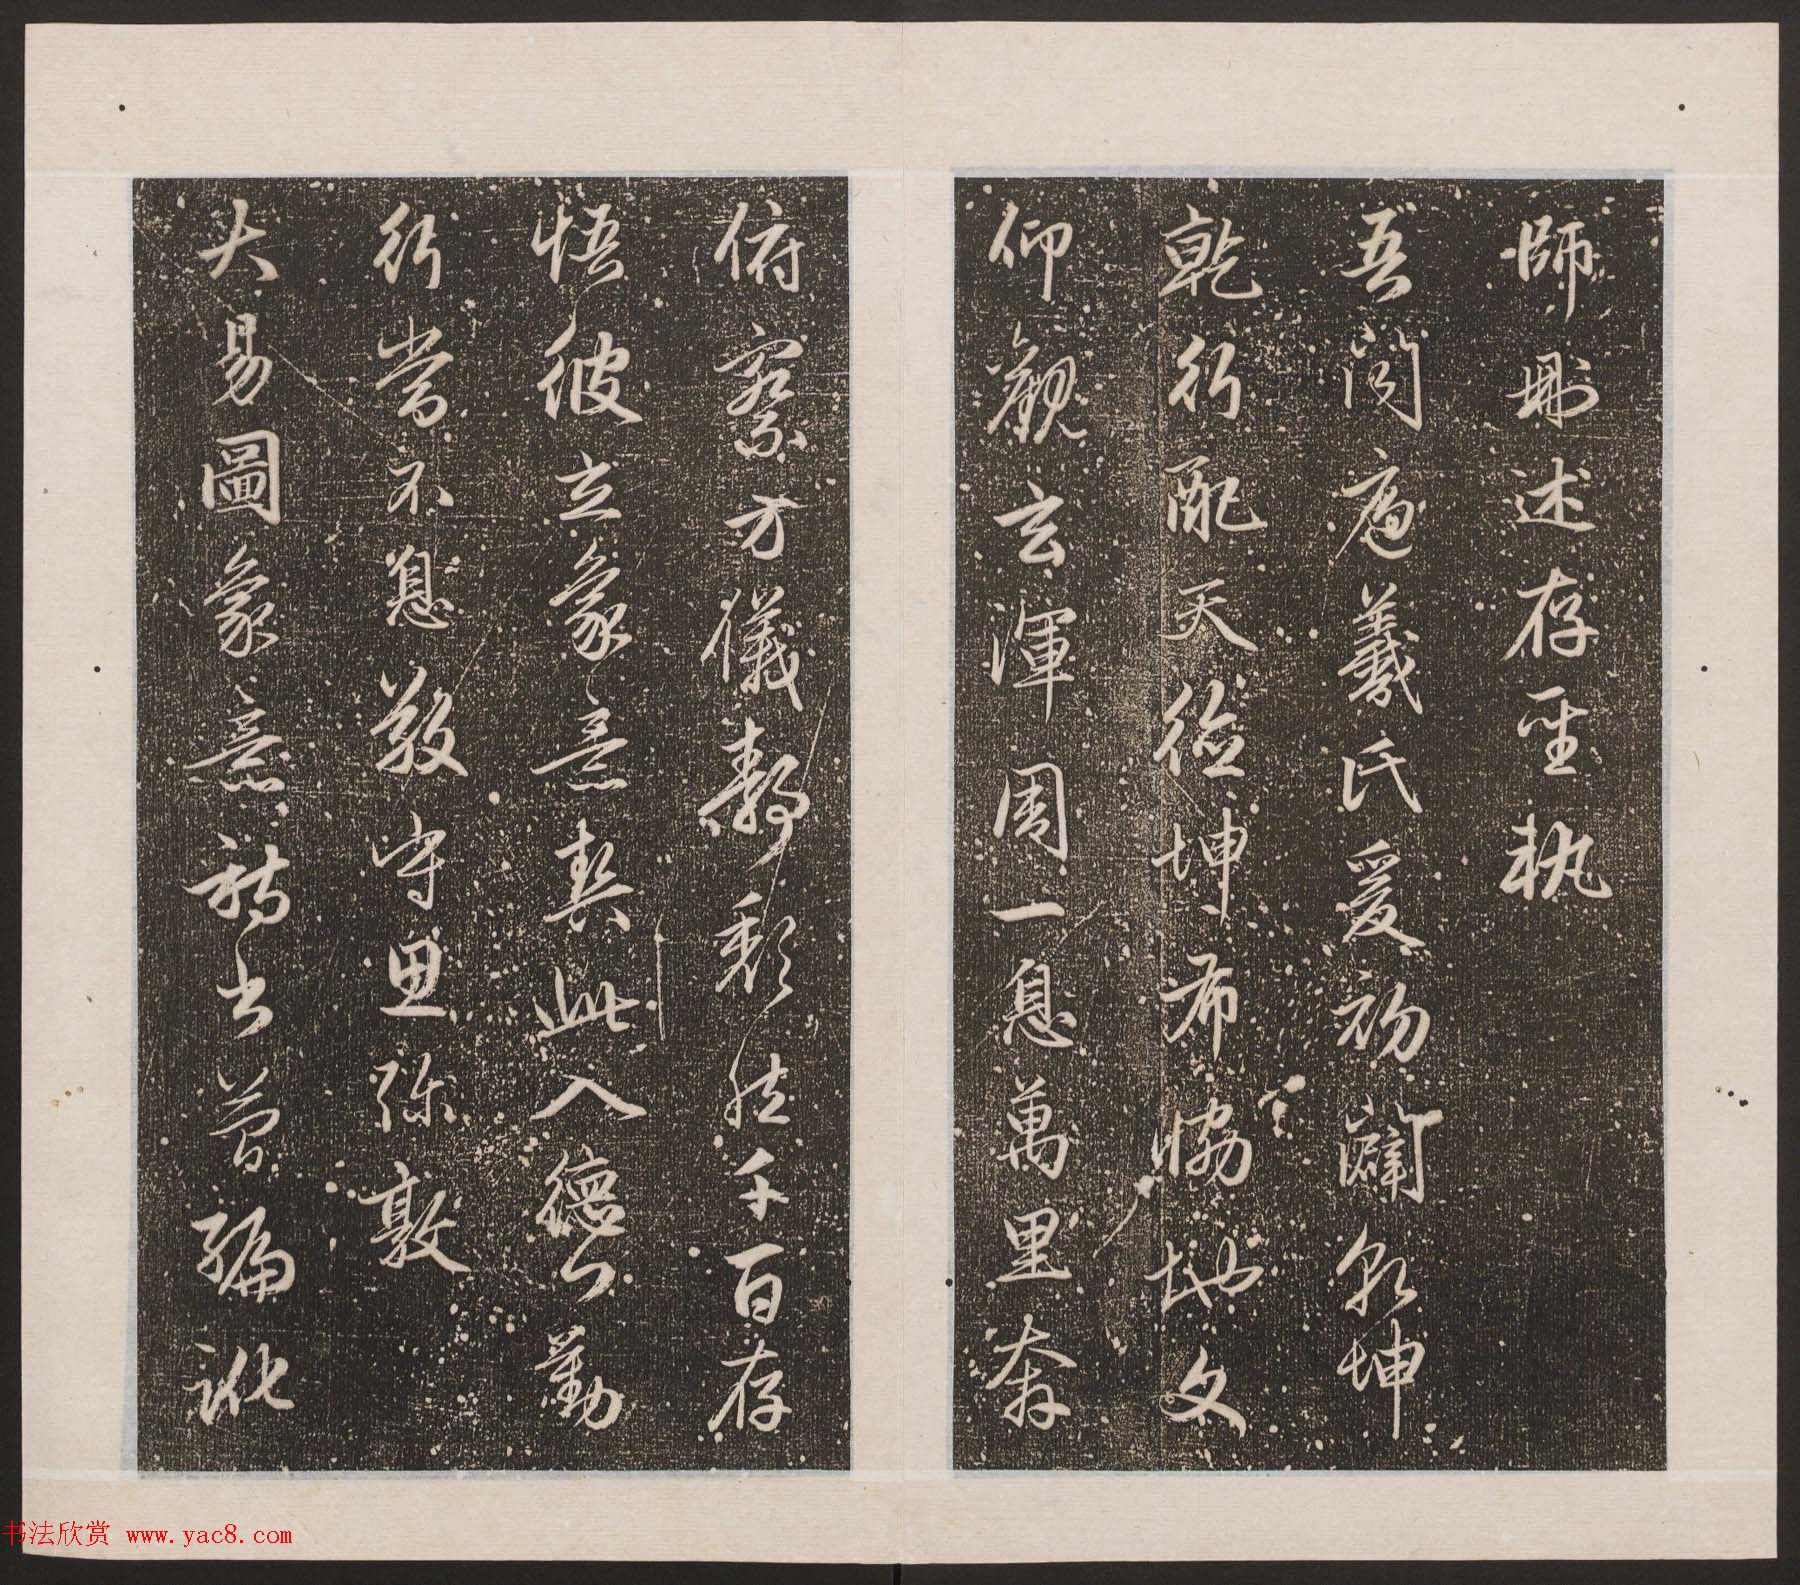 師刪述存聖軌
吾聞庖羲氏爰初闢乾坤
乾行配天德坤布協地文
仰觀玄渾周一息萬里奔
俯察方儀靜隤然千百存
悟彼立象意契此入德門勤
行當不息敬守思彌敦
大易圖象意詩書簡編訛
书法欣赏 www.yac8.com